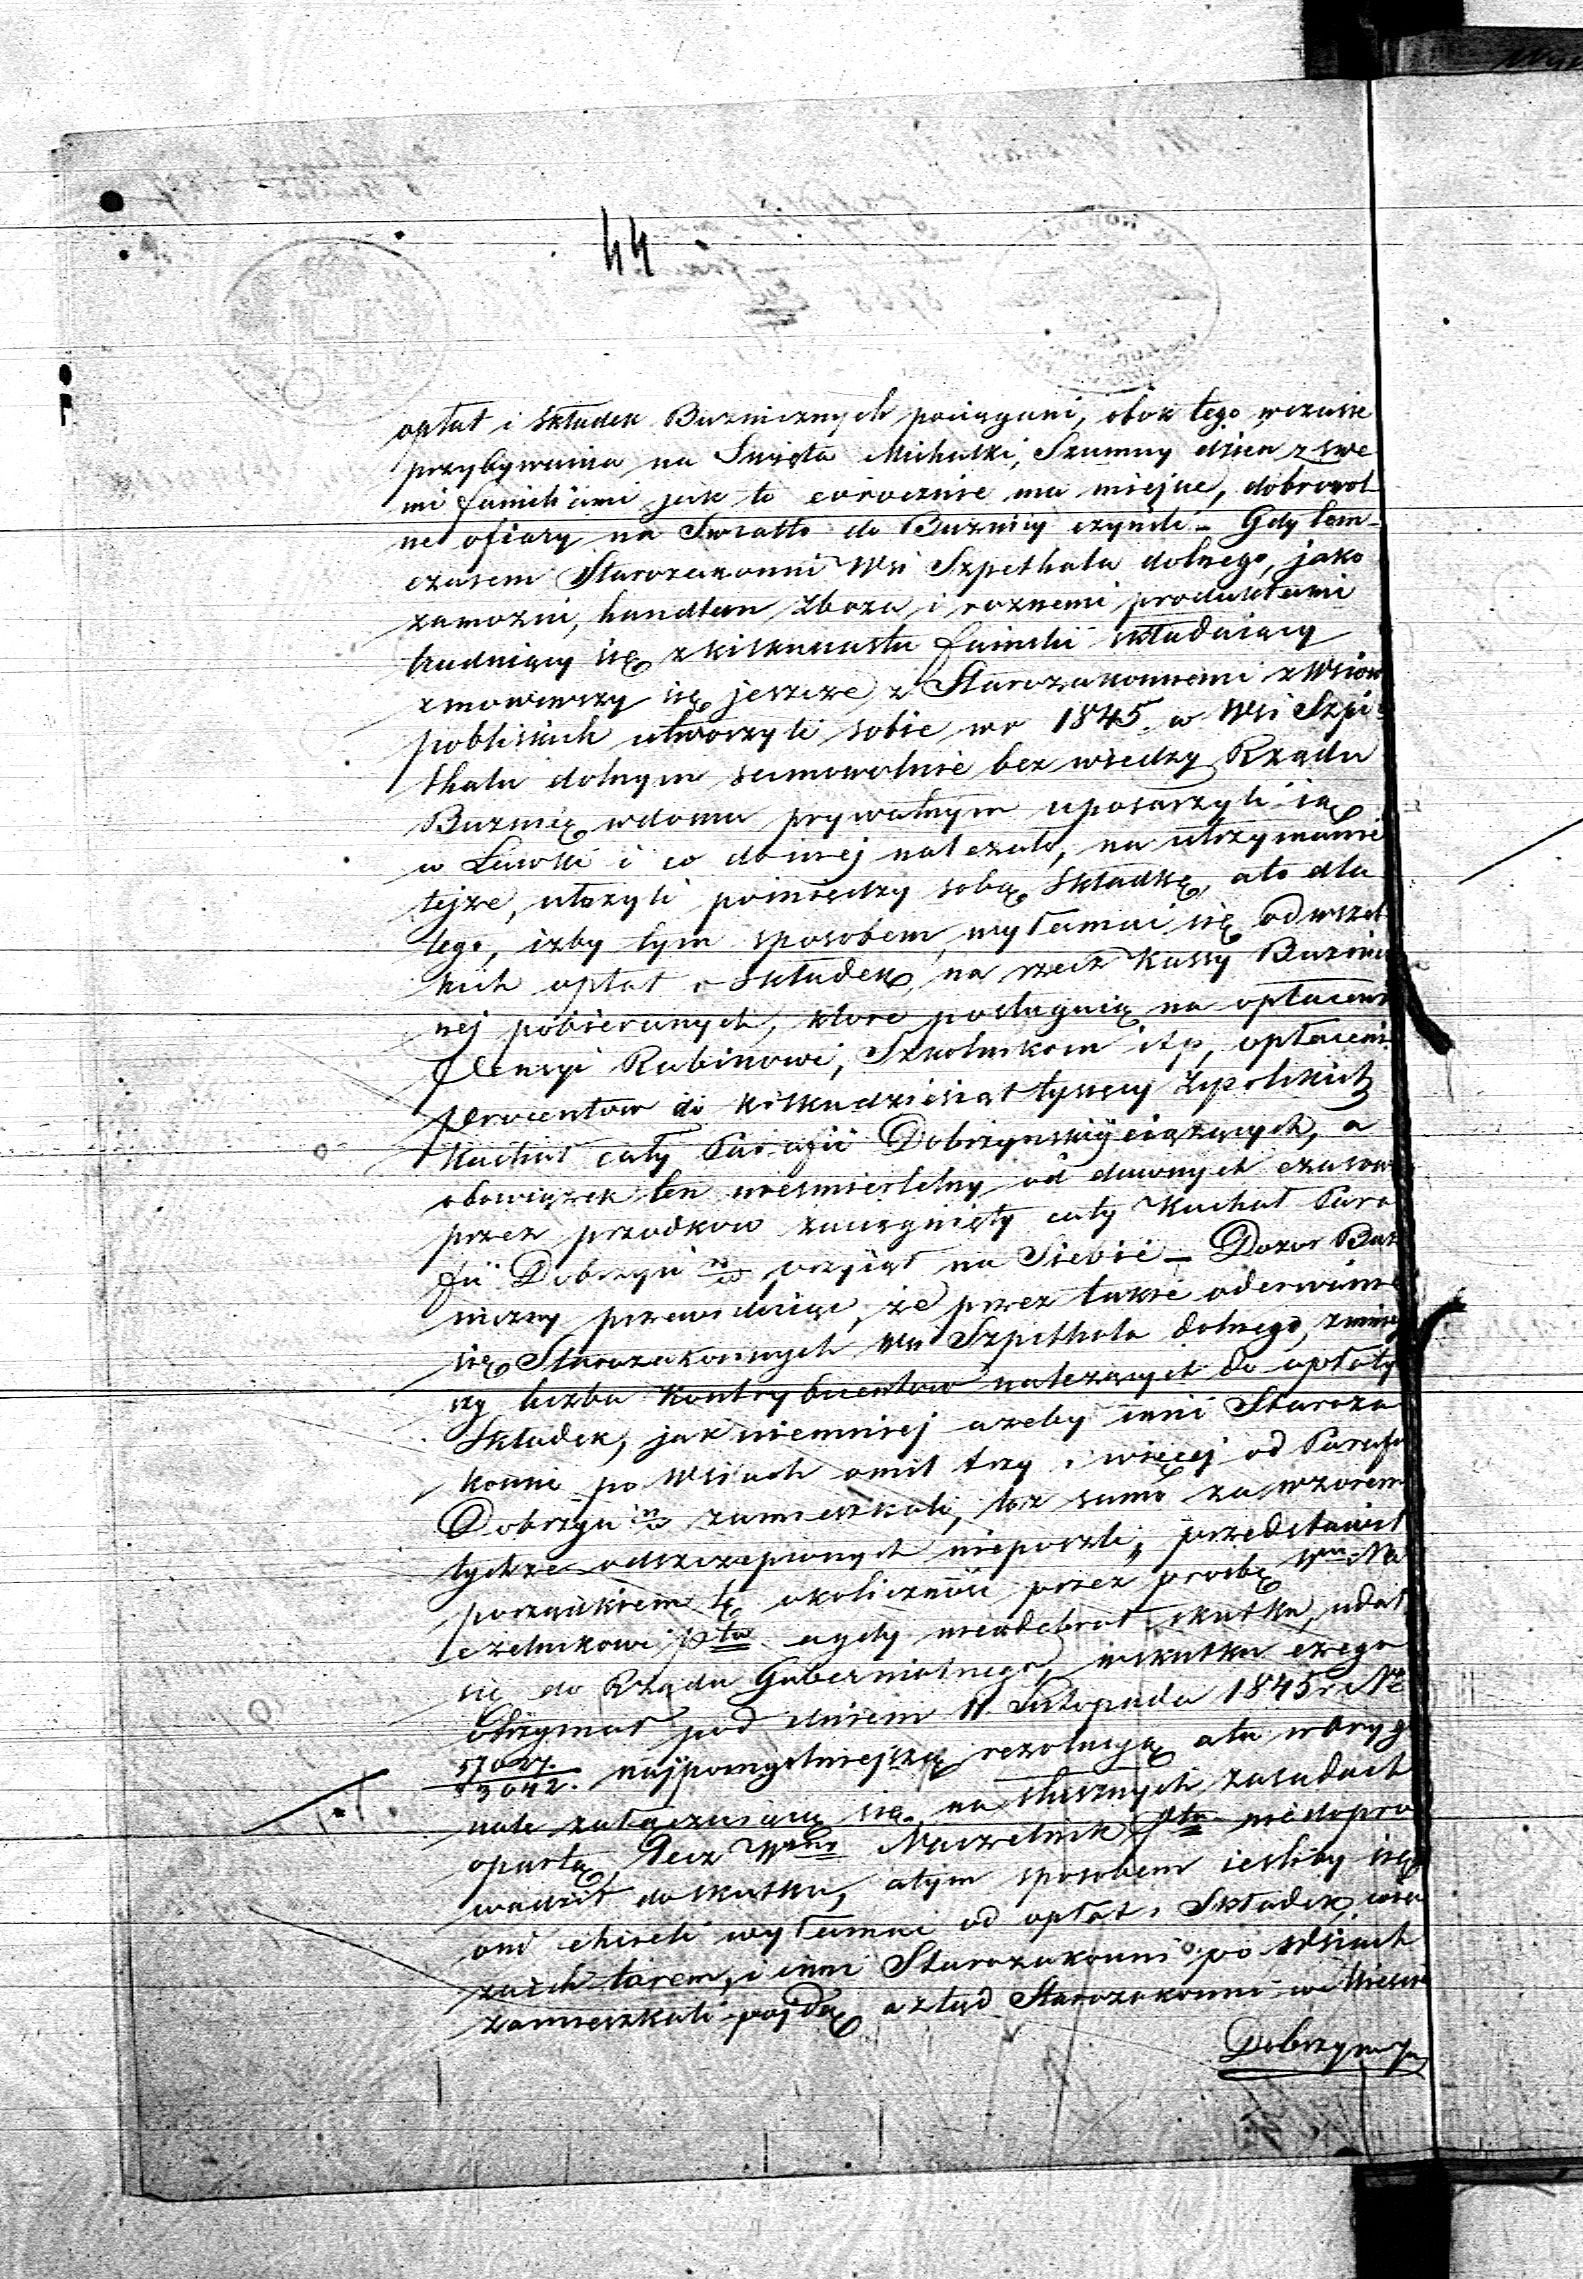 44
opłat i składek Buzniczných pociągani, obok tego wczasie
przybywania na Swięta Michałki, Szumny dzien z swe
mi familiami jak to corocznie ma miejsce, dobrowol
ne ofiary na Swiatło do Buznicy czynili – Gdy tem-
czasem Starozakonni Wsi Szpethala dolnego, jako
zamozni, handlem zboza i roznemi produktami
trudniący się z kilkunastu familii składaiący
zmowiwszy się jeszcze z Starozakonnemi z Wsiow
pobliskich utworzyli sobie wr 1845. w Wsi Szpi-
thalu dolnym samowolnie bez wiedzy Rządu
Buznię wdomu prywatnym uposarzyli ią
w Ławki i co do niej nalezało, na utrzymanie
tejze, ułozyli pomiędzy sobą składkę, a to dla
tego, izby tym sposobem wyłamac się od wszel
kich opłat i składek, na rzecz Kassy Buznicz
nej pobieranych, ktore posługuią na opłaceni
Pensyi Rabinowi, Szkolnikom itp, opłaceni
procentow do kilkudziesiąt tysięcy Złpolskich
Kachał cały Parafii Dobrzynskiy ciążących, a
obowiązek ten niesmiertelny od dawnych czasow
przez przodkow zaciągnięty cały Kachał Para
fii Dobrzyn n/w przyiął na Siebie – Dozor Buz
niczny przewidziąc, że przez takie oderwanie
się Starozakonnych Wsi Szpithala dolnego, zmniej
szy liczba Kontrybuentow nalezących do opłaty
Składek, jak niemniej azeby inni Staroza
konni po Wsiach o mil trzy i więcej od Parafii
Dobrzyn n/w zamieszkali, toz samo za wzorem
tychze odszczepionych nieposzli, przedstawił
porządkiem tę okoliczność przez prosbę Wmu Na
czelnikowi Ptu a gdy nieodebrał skutku, udał
się do Rządu Gubernialnego, wskutku czego
otrzymał pod dniem 11 Listopada 1845 r. Nr
57027/13042. najpomyslniejszą rezolucyą ata woryg
nale załączaiącą się na słusznych zasadach
opartą, Lecz Wmy Naczelnik Ptu niedopro
wadził do skutku, a tym sposobem iesliby się
oni chcieli wyłamac od opłat i Składek, wra
zaich torem, i inni Starozakonni po Wsiach
zamieszkali pojdą a ztąd Starozakonni w Miescie
Dobrzyniu